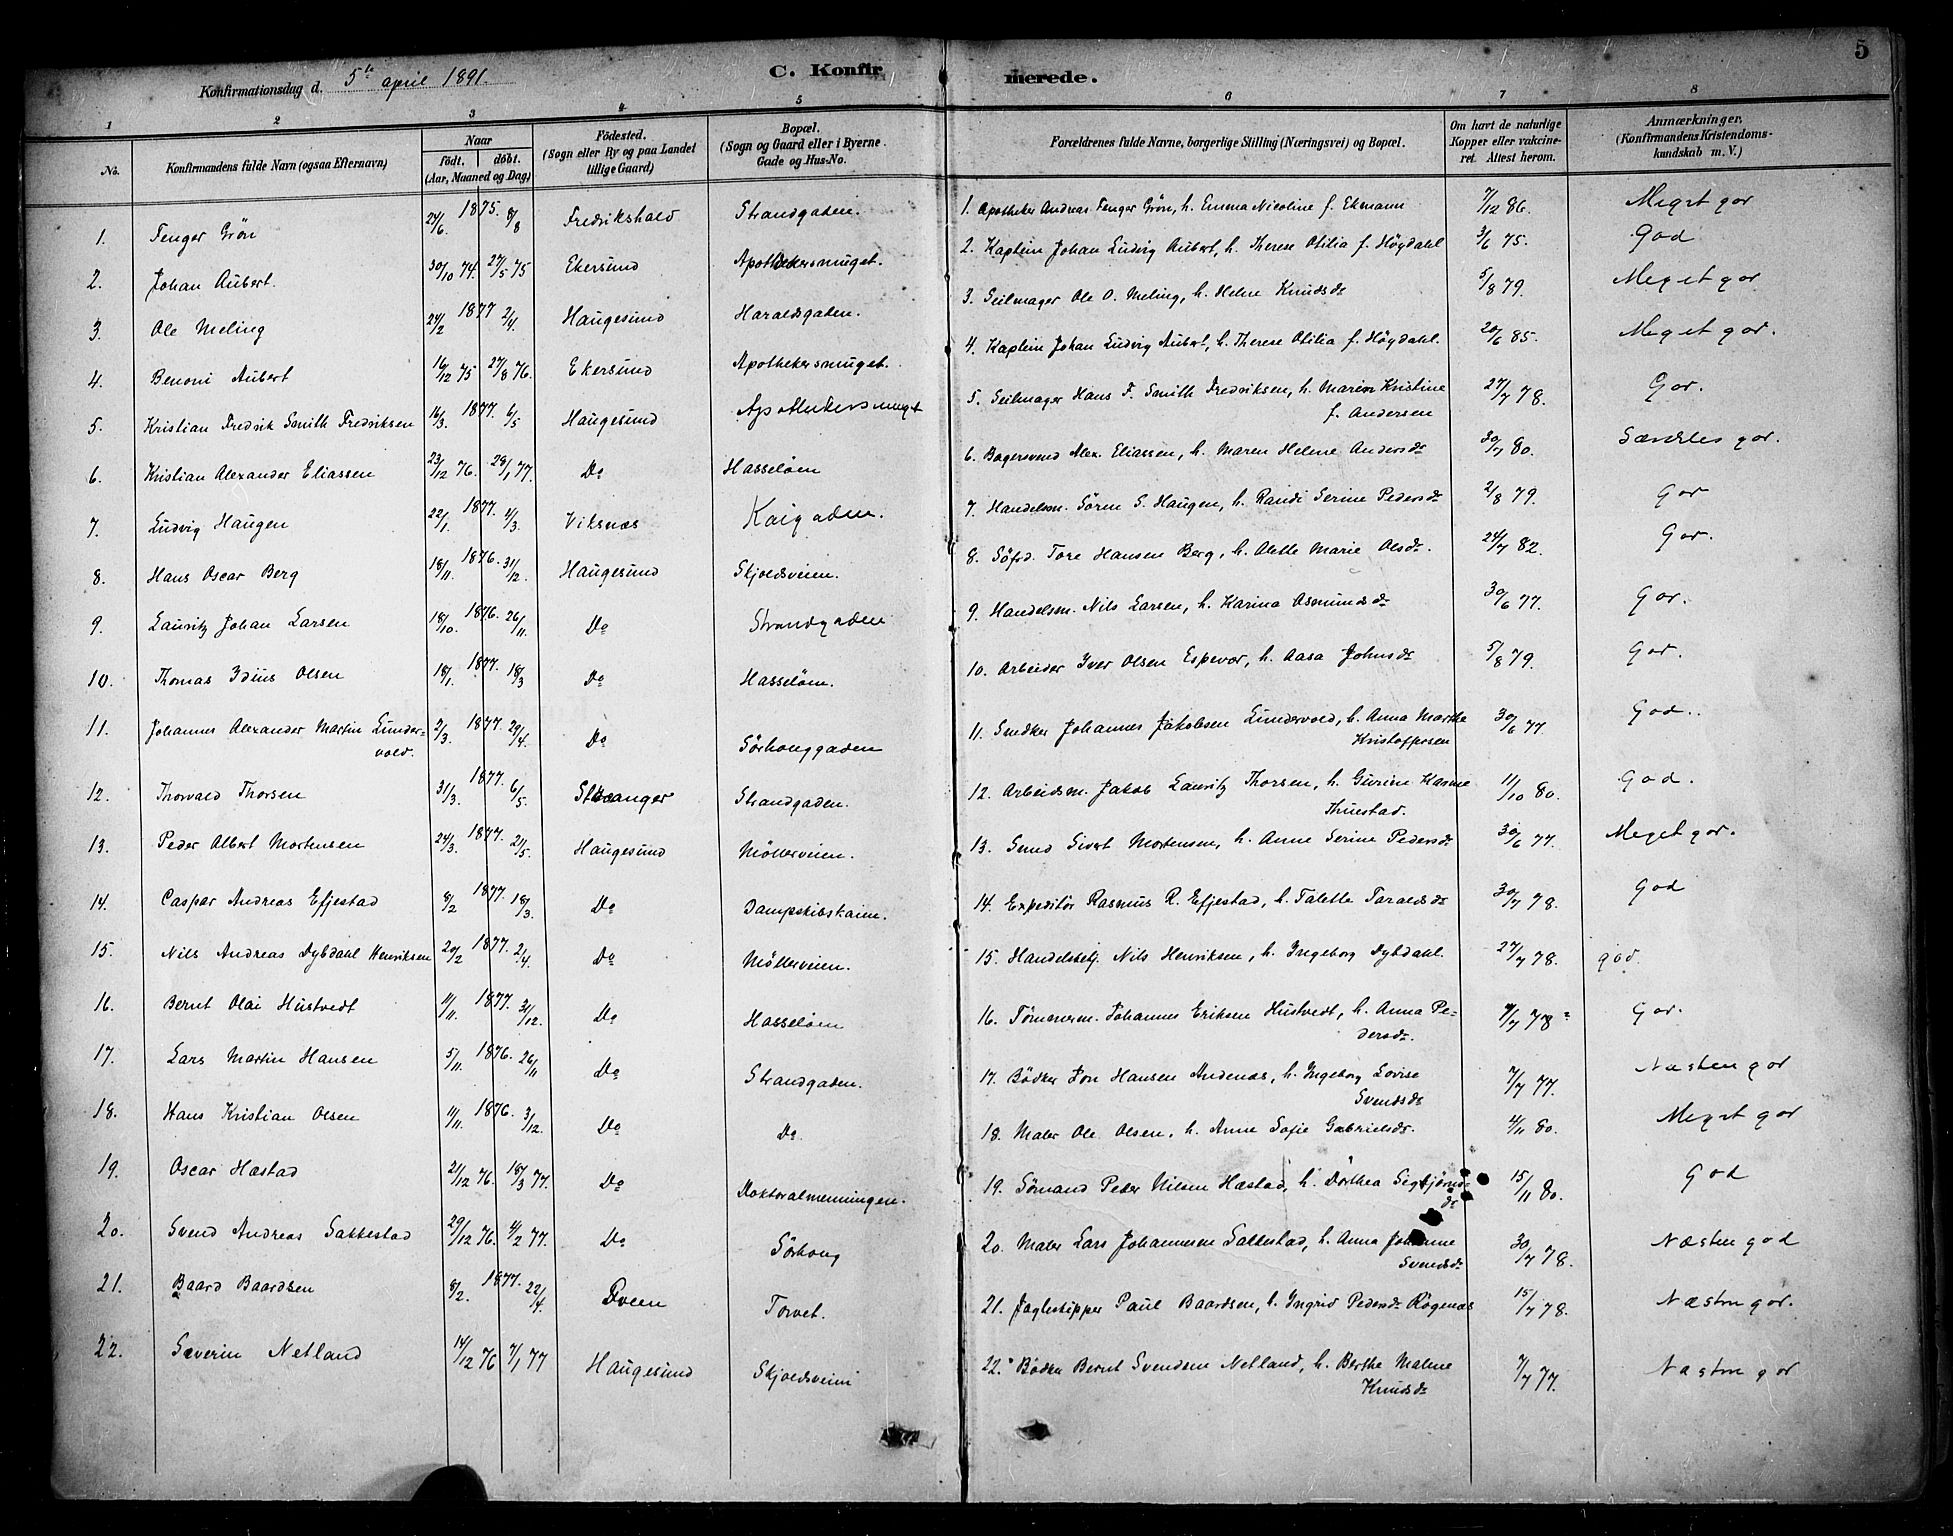 5
Konfirmationsdag d. 5te april 1891.
C. Konfirmerede.
1 2 3 4 5 6 7 8
No.
Konfirmandens fulde Navn (ogsaa Efternavn)
Naar
født. døbt.
(Aar, Maaned og Dag)
Fødested.
(Sogn eller By og paa Landet
tillige Gaard)
Bopæl.
(Sogn og Gaard eller i Byerne
Gade og Hus-No.
Forældrenes fulde Navne, borgerlige Stilling (Næringsvei) og Bopæl.
Om havt de naturlige
Kopper eller vakcine-
ret. Attest herom.
Anmærkninger.
(Konfirmandens Kristendoms-
kundskab m. V.)
1. Fenger Grön 24/6. 1875. 8/8 Fredrikshald Strandgaden. 1. Apotheker Andreas Fenger Grön, h. Emma Nicoline f. Ekmann 7/12 86. Meget god
2. Johan Aubert. 30/10 74. 27/5 75 Ekersund Apothekersmuget. 2. Kaptein Johan Ludvig Aubert, h. Therese Otilia f. Höydahl 3/6 75. God
3. Ole Meling 24/2 1877 2/4. Haugesund Haraldsgaden. 3. Seilmager Ole O. Meling, h. Helene Knudsdr 5/8 79. Meget god.
4. Benoni Aubert 16/12 75 27/8 76. Ekersund Apothekersmuget. 4. Kaptein Johan Ludvig Aubert, h. Therese Otilia f. Höydahl. 20/6 85. Meget god.
5. Kristian Fredrik Smith Fredriksen 16/3. 1877. 6/5 Haugesund Apothekersmuget 5. Seilmager Hans F. Smith Fredriksen, h. Maren Kristine
f. Andersen 27/7 78. God.
6. Kristian Alexander Eliassen 23/12 76. 28/1 77. Do Hasseløen 6. Bogersvend Alex. Eliassen, h. Maren Helene Andersdr 30/7 80. Særdeles god.
7. Ludvig Haugen 22/1. 1877. 4/3. Viksnæs Kaigaden. 7. Handelsm. Sören S. Haugen, h. Randi Serine Pedersdr 2/8 79. God
8. Hans Oscar Berg 18/11. 1876. 31/12. Haugesund Skjoldsveien. 8. Söfd. Tore Hansen Berg, h. Alette Marie Olsdr. 24/7 82. God.
9. Lauritz Johan Larsen 18/10. 1876. 26/11. Do Strandgaden 9. Handelsm. Nils Larsen, h. Karina Asmundsdr 30/6 77. God.
10. Thomas Idius Olsen 18/1. 1877. 18/3 Do Hasseløen. 10. Arbeider Iver Olsen Espevær, h. Aasa Johnsdr 5/8 79. God.
11. Johannes Alexander Martin Lunder-
vold. 2/3. 1877. 29/4. Do Sörhauggaden 11. Snedker Johannes Jakobsen Lundervold, h. Anna Marthe
Kristoffersen 30/6 77. God.
12. Thorvald Thorsen 31/3. 1877. 6/5. Stavanger Strandgaden. 12. Arbeidsm. Jakob Lauritz Thorsen, h. Gurine Hanne
Thuestad. 11/10 80. God.
13. Peder Albert Mortensen 24/3. 1877. 2/5. Haugesund Möllerveien. 13. Smed Sivert Mortensen, h. Anne Serine Pedersdr 30/6 77. Meget god.
14. Caspar Andreas Efjestad 8/2 1877. 18/3. Do Dampskibskaien. 14. Expeditör Rasmus R. Efjestad, h. Talette Taraldsdr 30/7 78. God
15. Nils Andreas Dybdahl Henriksen 20/2 1877. 2/4. Do Möllerveien. 15. Handelsbetj. Nils Henriksen, h. Ingeborg Dybdahl. 27/7 78. god.
16. Bernt Olai Hustvedt 11/11. 1877. 31/12. Do Hasseløen 16. Tömmerm. Johannes Eriksen Hustvedt, h. Anna Pe-
dersdr. 9/7 78 God.
17. Lars Martin Hansen 5/11. 1876. 26/11 Do Strandgaden. 17. Bödker Jon Hansen Andenæs, h. Ingeborg Lovise
Svendsdr 7/7 77. Næsten god
18. Hans Kristian Olsen 11/11. 1876. 3/12. Do Do 18. Maler Ole Olsen, h. Anne Sofie Gabrielsdr. 4/11 80. Meget god
19. Oscar Hæstad 21/12 76. 18/3 77. Do Doktoralmenningen. 19. Sömand Peder Nilsen Hæstad, h. Dorthea Sigbjörns-
dr 15/11 80. God
20. Svend Andreas Sakkestad 29/12 76. 4/2 77. Do Sörhaug 20. Maler Lars Johannesen Sakkestad, h. Anna Johanne
Svendsdr 30/7 78. Næsten god
21. Baard Baardsen 8/2. 1877. 22/4. Sveen Torvet. 21. Jagteskipper Paul Baardsen, h. Ingrid Pedersdr Rögenæs 15/7 78. Næsten god.
22. Severin Netland 14/12 76 7/1 77 Haugesund Skjoldsveien 22. Bödker Bernt Svendsen Netland, h. Berthe Malene
Knudsdr 7/7 77. Næsten god